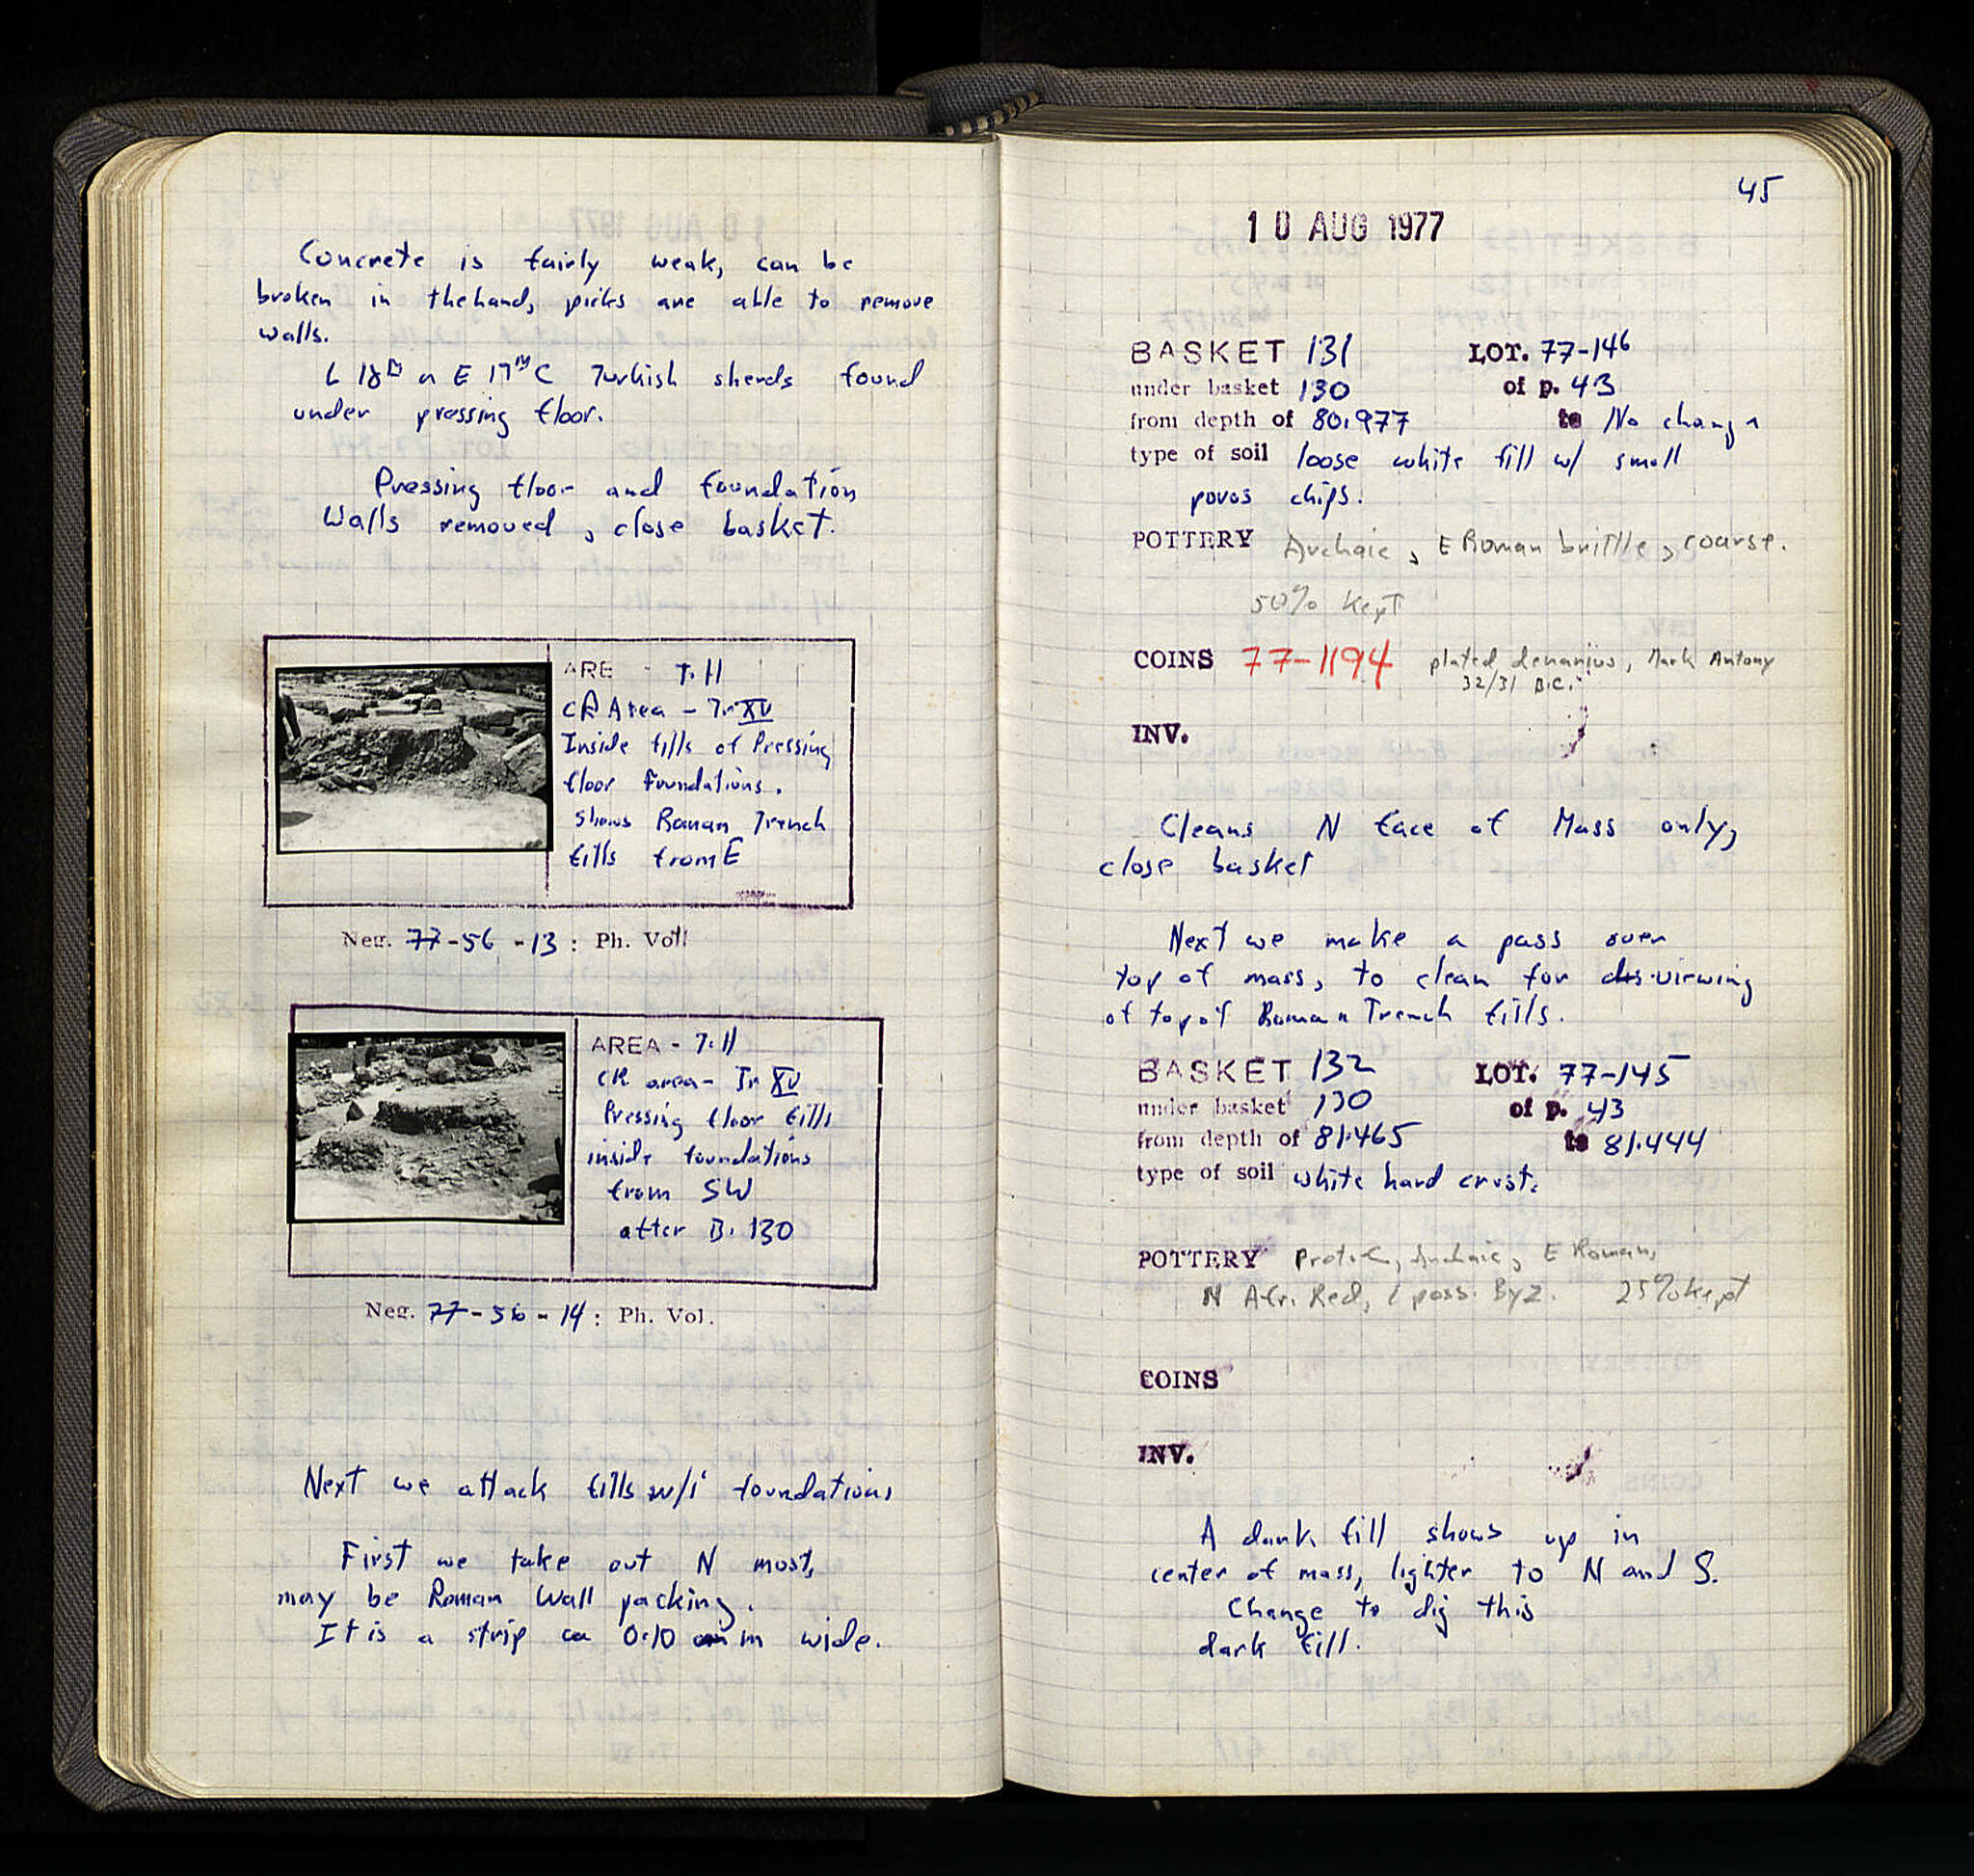 Concrete is fairly weak, can be
broken in the hand, picks are able to remove
walls.
L 18th or E 19th C Turkish sherds found
under pressing floor.
Pressing floor and foundation
Walls removed, close basket.
AREA - T.11
CR Area - Tr XV
Inside fills of Pressing
floor Foundations.
shows Roman Trench
fills from E
Neg. 77-56-13: Ph. Vol.
AREA - T.11
CR area - Tr XV
Pressing floor fills
inside foundations
from SW
after B. 130
Neg. 77-56-14: Ph. Vol.
Next we attack fills w/i foundations
First we take out N most,
may be Roman Wall packing.
It is a strip ca 0.10 m wide.
45
10 AUG 1977
BASKET 131 LOT. 77-146
under basket 130 of p. 43
from depth of 80.977 to No change
type of soil loose white fill w/ small
poros chips.
POTTERY Archaic, E Roman brittle, coarse.
50% kept
COINS 77-1194 plated denarius, Mark Antony
32/31 B.C.
INV.
Cleans N face of Mass only,
close basket
Next we make a pass over
top of mass, to clean for viewing
of top of Roman Trench fills.
BASKET 132 LOT. 77-145
under basket 130 of p. 43
from depth of 81.465 to 81.444
type of soil white hard crust.
POTTERY ProtoC, Archaic, E Roman,
N Afr. Red, 1 poss. Byz. 25% kept
COINS
INV.
A dark fill shows up in
center of mass, lighter to N and S.
Change to dig this
dark fill.